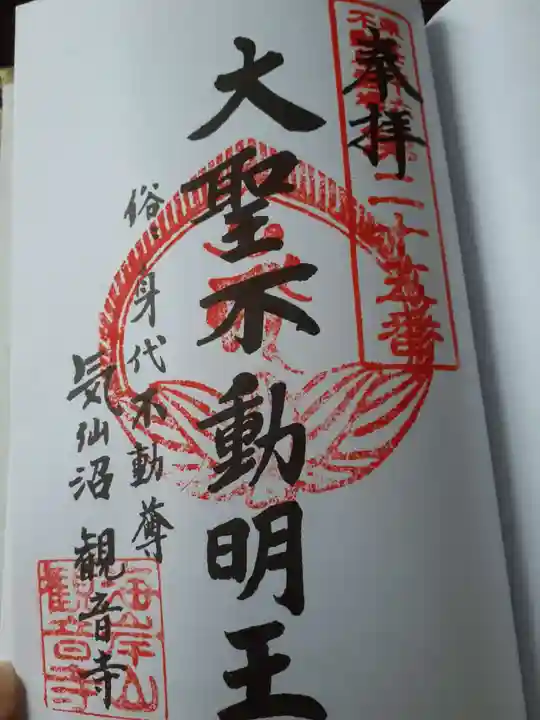 奉拝
二十五番
大聖不動明王
俗・身代不動尊
気仙沼 観音寺
海岸山
観音寺